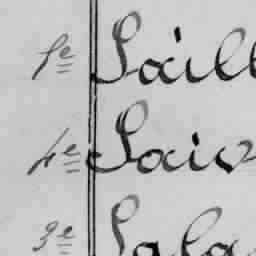 1e Saill
4e Saiv
3e Sala